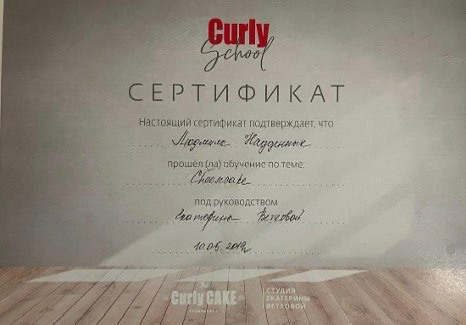 Curly
School
СЕРТИФИКАТ
Настоящий сертификат подтверждает, что
Людмила
прошел (ла) обучение по теме:
Cheesecake
под руководством
Екатерины Ветковой
10.05.2019г
The
Curly CAKE
СТУДИЯ
ЕКАТЕРИНЫ
ВЕТКОВОЙ